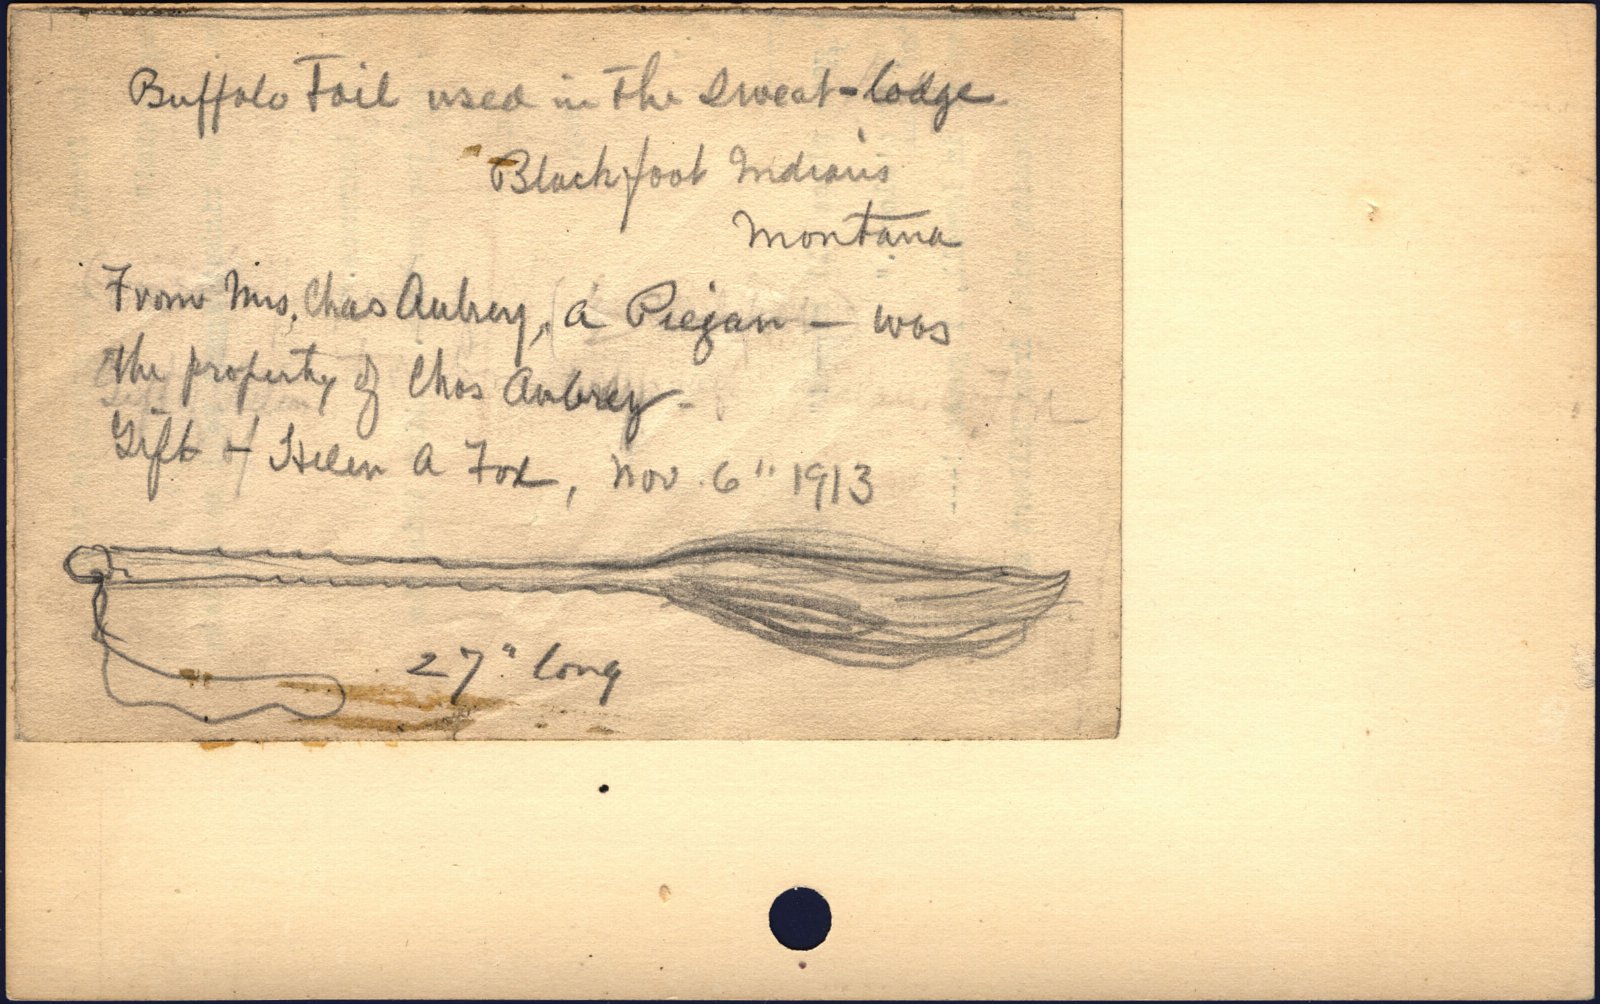 Buffalo Tail used in the Sweat-lodge.
Blackfoot Indians
Montana
From Mrs. Chas Aubrey, a Piegan – was
the property of Chas Aubrey –
Gift of Helen A Fox, Nov. 6" 1913
27" long